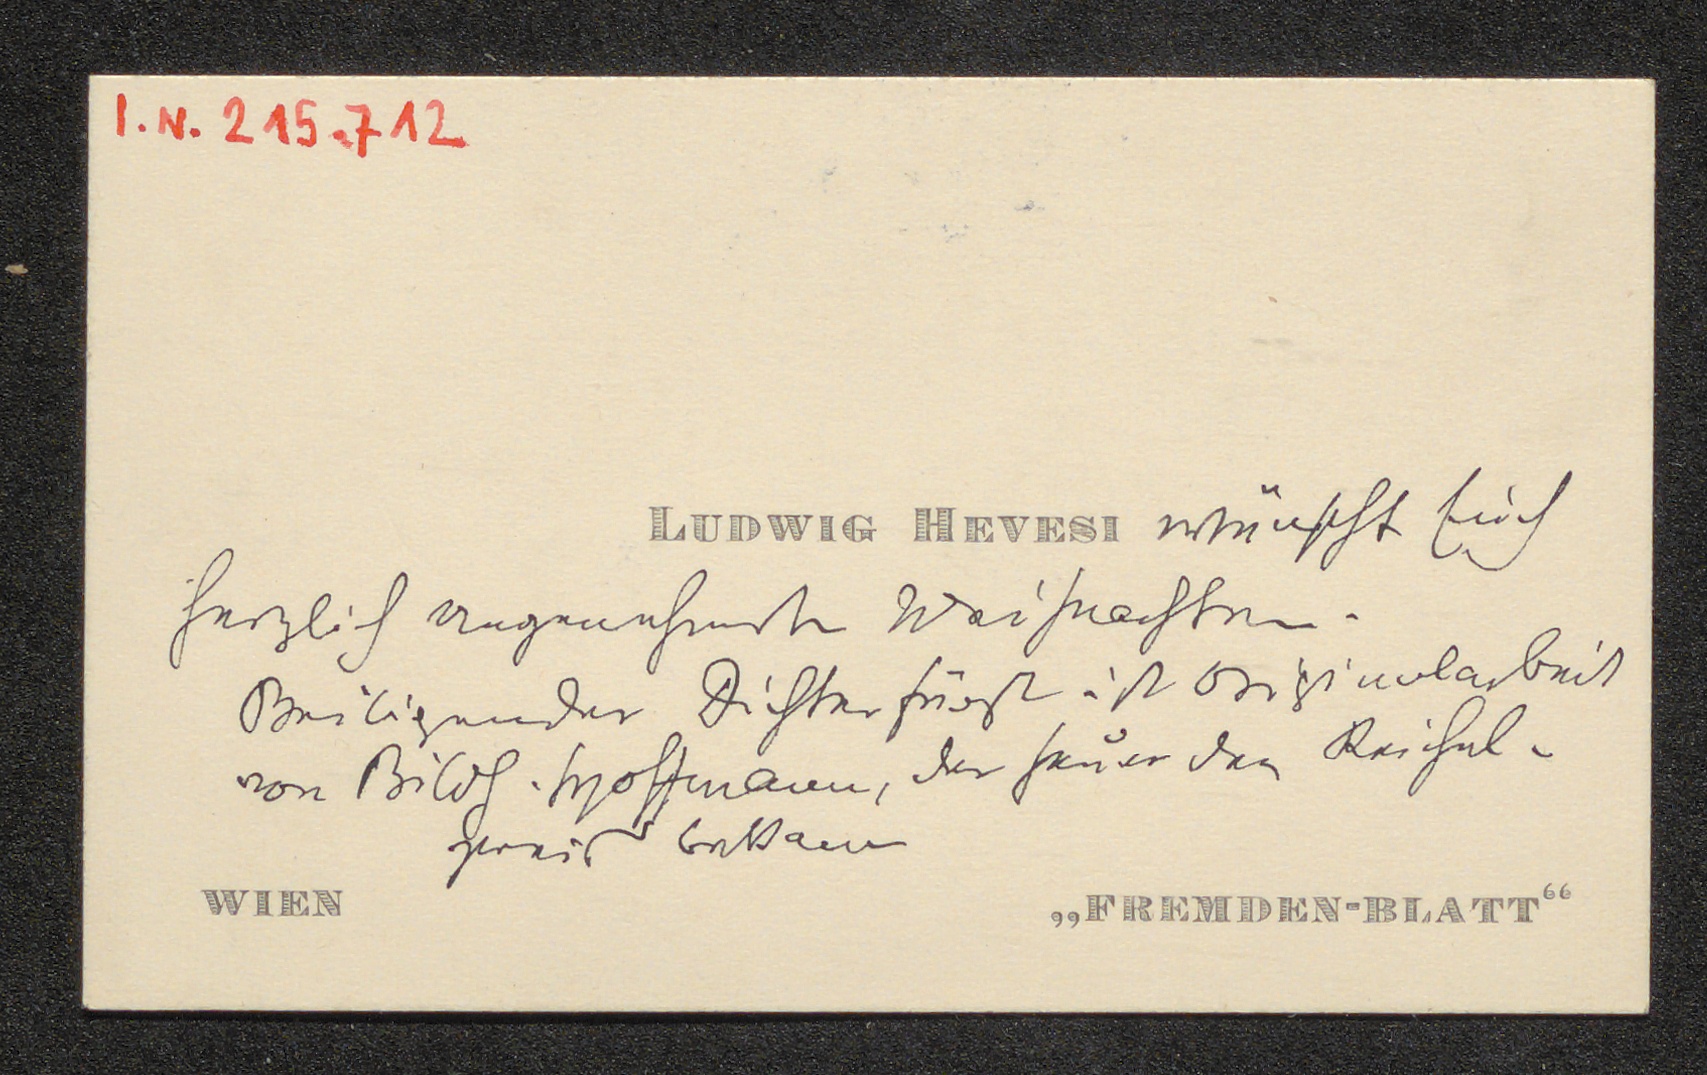 I.N. 215.712
LUDWIG HEVESI wünscht Euch
herzlich angenehmste Weihnachten.
Beiligender Dichterfürst ist Originalarbeit
von Bildh. Hoffmann, der heuer den Reichel-
preis bekam
WIEN „FREMDEN-BLATT“